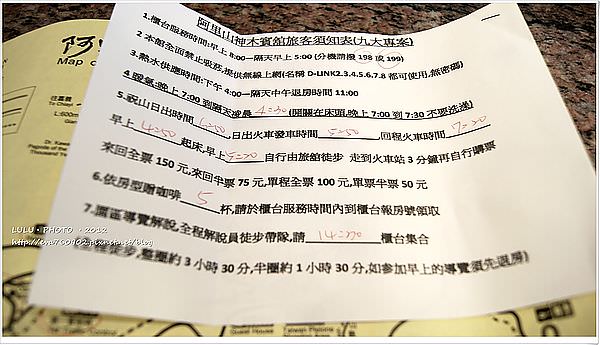 阿里山神木賓館旅客須知表(九大專案)
1.櫃台服務時間:早上 8:00—隔天早上 5:00 (分機請撥 198 或 199)
2 本館全面禁止吸菸,提供無線上網(名稱 D-LINK2.3.4.5.6.7.8 都可使用,無密碼)
3.熱水供應時間:下午 4:00—隔天中午退房時間 11:00
4 暖氣:晚上 7:00 到隔天凌晨 4:30 (開關在床頭,晚上 7:00 到 7:30 不要洗澡)
5.祝山日出時間 日出火車發車時間 5:50 回程火車時間
早上 4:50 起床,早上 5:20 自行由旅館徒步 走到火車站 3 分鐘再自行購票
來回全票 150 元,來回半票 75 元,單程全票 100 元,單票半票 50 元
6.依房型贈咖啡 5 杯,請於櫃台服務時間內到櫃台報房號領取
7.園區導覽解說,全程解說員徒步帶隊,請 14:20 櫃台集合
徒步,整圈約 3 小時 30 分,半圈約 1 小時 30 分,如參加早上的導覽須先退房)
阿
Map
往嘉義
To Chiayi
L:600m
LULU・PHOTO・2012
http://eva760902.pixnet.net/blog